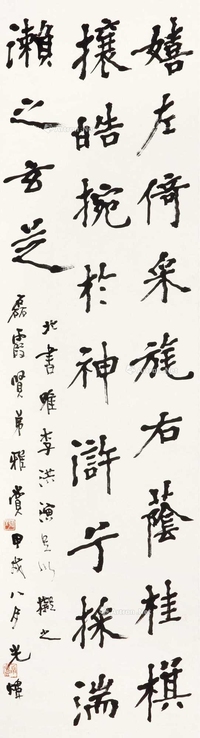 嬉左倚采旄右蔭桂旗
攘皓捥於神滸兮採湍
瀨之玄芝
北書唯李洪演足以擬之
磊霞賢弟雅賞甲戌八月光煒